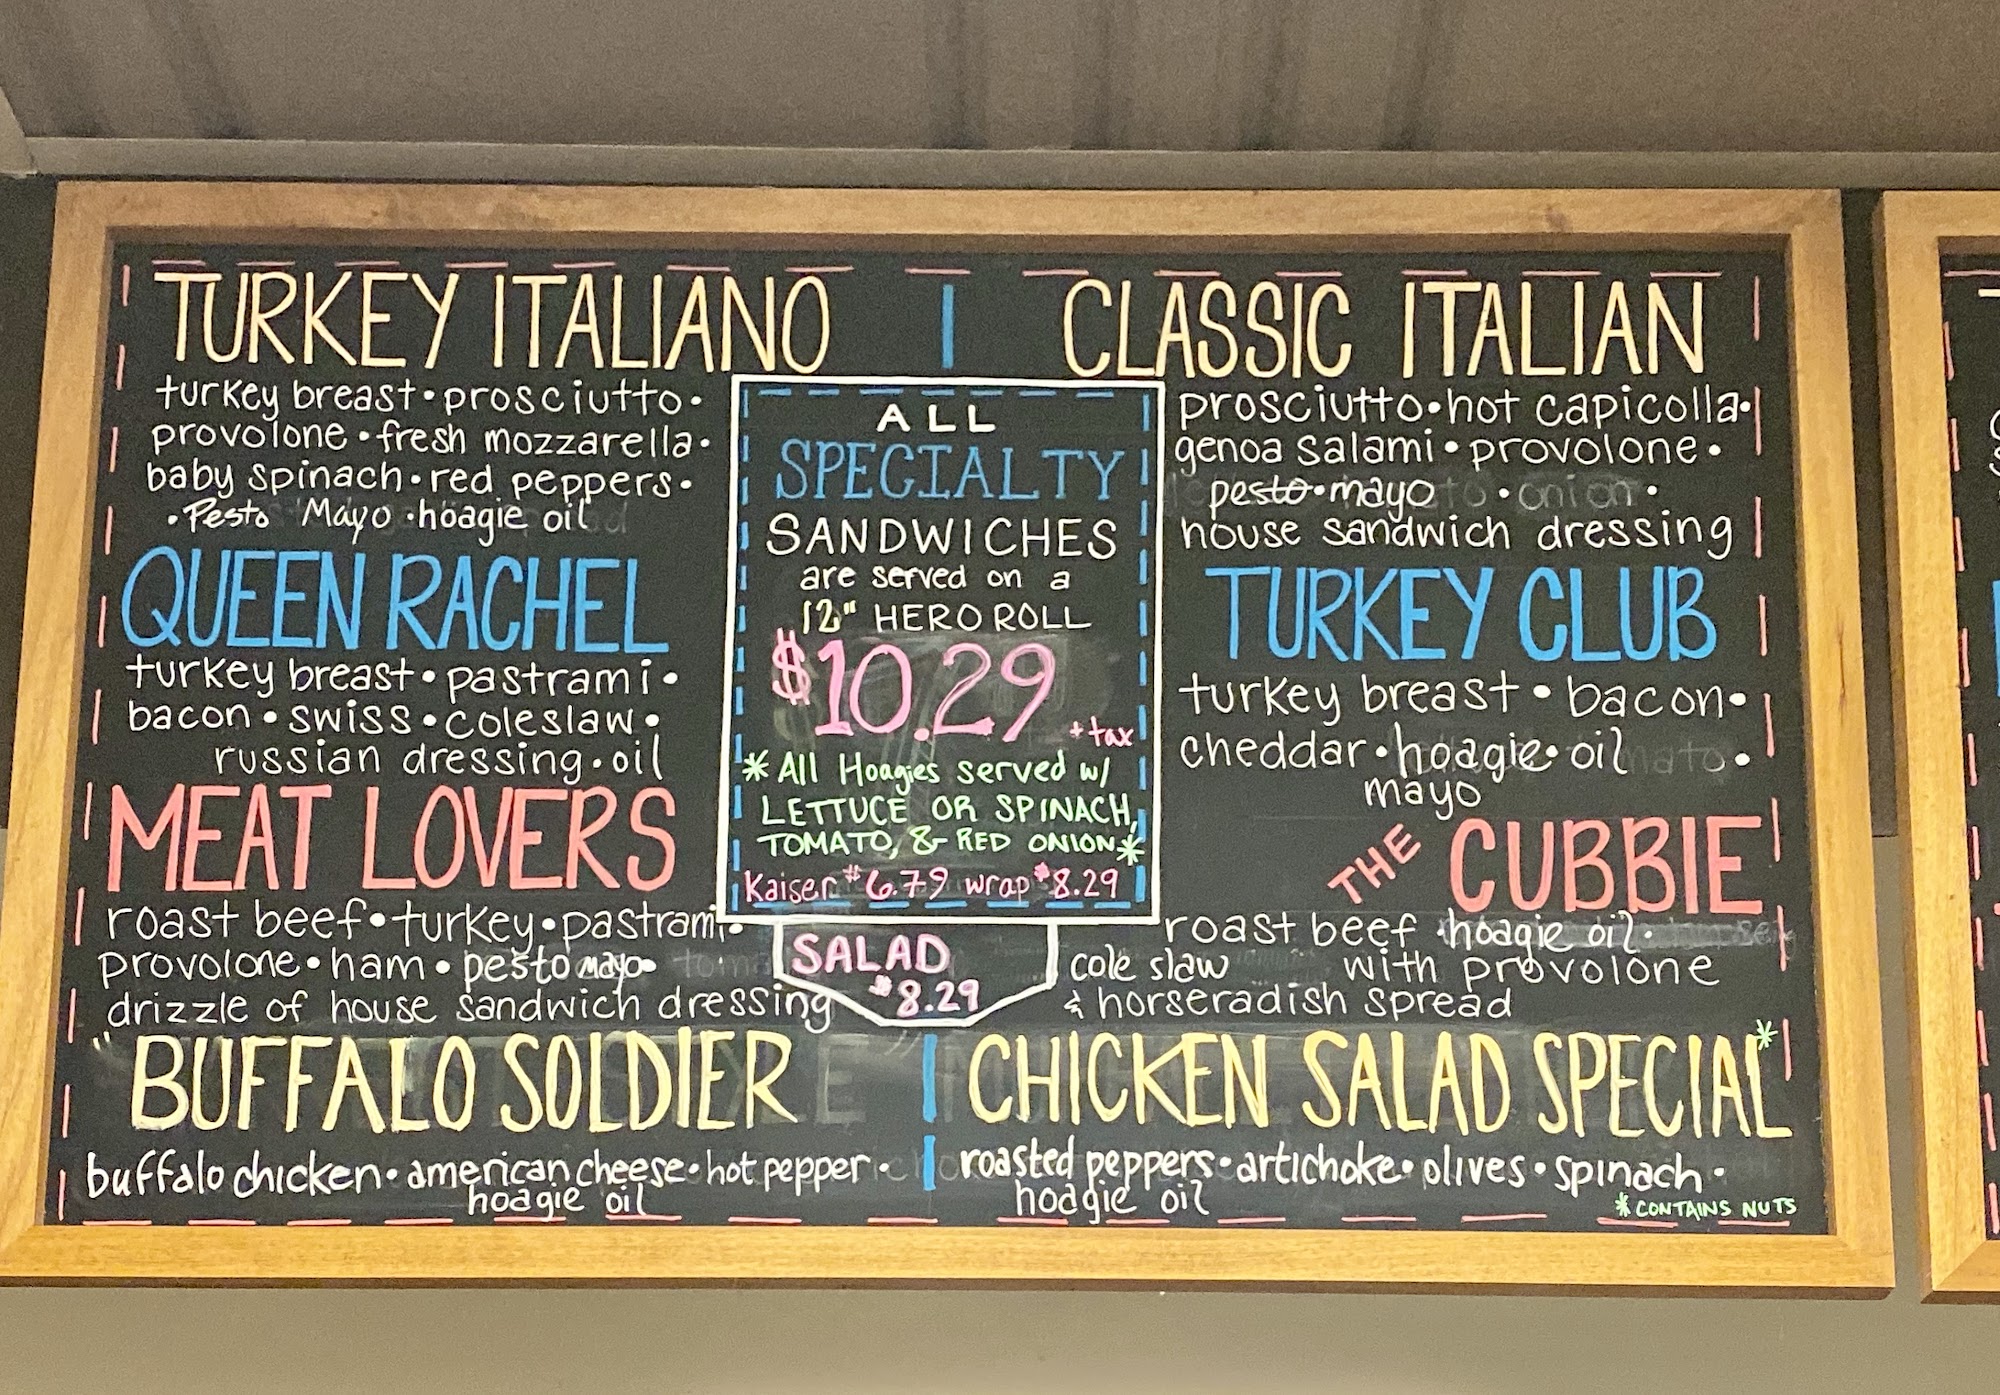 TURKEY ITALIANO
turkey breast • prosciutto •
provolone • fresh mozzarella •
baby spinach • red peppers •
• Pesto Mayo • hoagie oil
QUEEN RACHEL
turkey breast • pastrami •
bacon • swiss • coleslaw •
russian dressing • oil
MEAT LOVERS
roast beef • turkey • pastrami •
provolone • ham • pesto mayo •
drizzle of house sandwich dressing
BUFFALO SOLDIER
buffalo chicken • american cheese • hot pepper •
hoagie oil
ALL
SPECIALTY
SANDWICHES
are served on a
12" HERO ROLL
$10.29
+ tax
* All Hoagies served w/
LETTUCE OR SPINACH,
TOMATO, & RED ONION *
Kaiser $6.79 wrap $8.29
SALAD
$8.29
CLASSIC ITALIAN
prosciutto • hot capicolla •
genoa salami • provolone •
pesto • mayo • onion •
house sandwich dressing
TURKEY CLUB
turkey breast • bacon •
cheddar • hoagie • oil •
mayo
THE CUBBIE
roast beef • hoagie oil •
cole slaw with provolone
& horseradish spread
CHICKEN SALAD SPECIAL*
roasted peppers • artichoke • olives • spinach •
hoagie oil
* CONTAINS NUTS